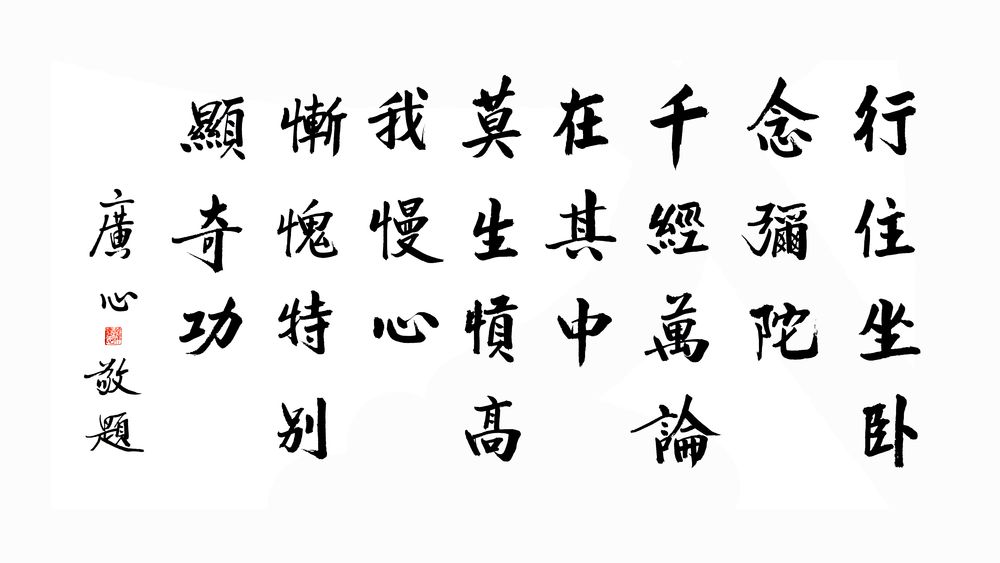 行住坐卧
念彌陀
千經萬論
在其中
莫生愩高
我慢心
慚愧特别
顯奇功
廣心敬題